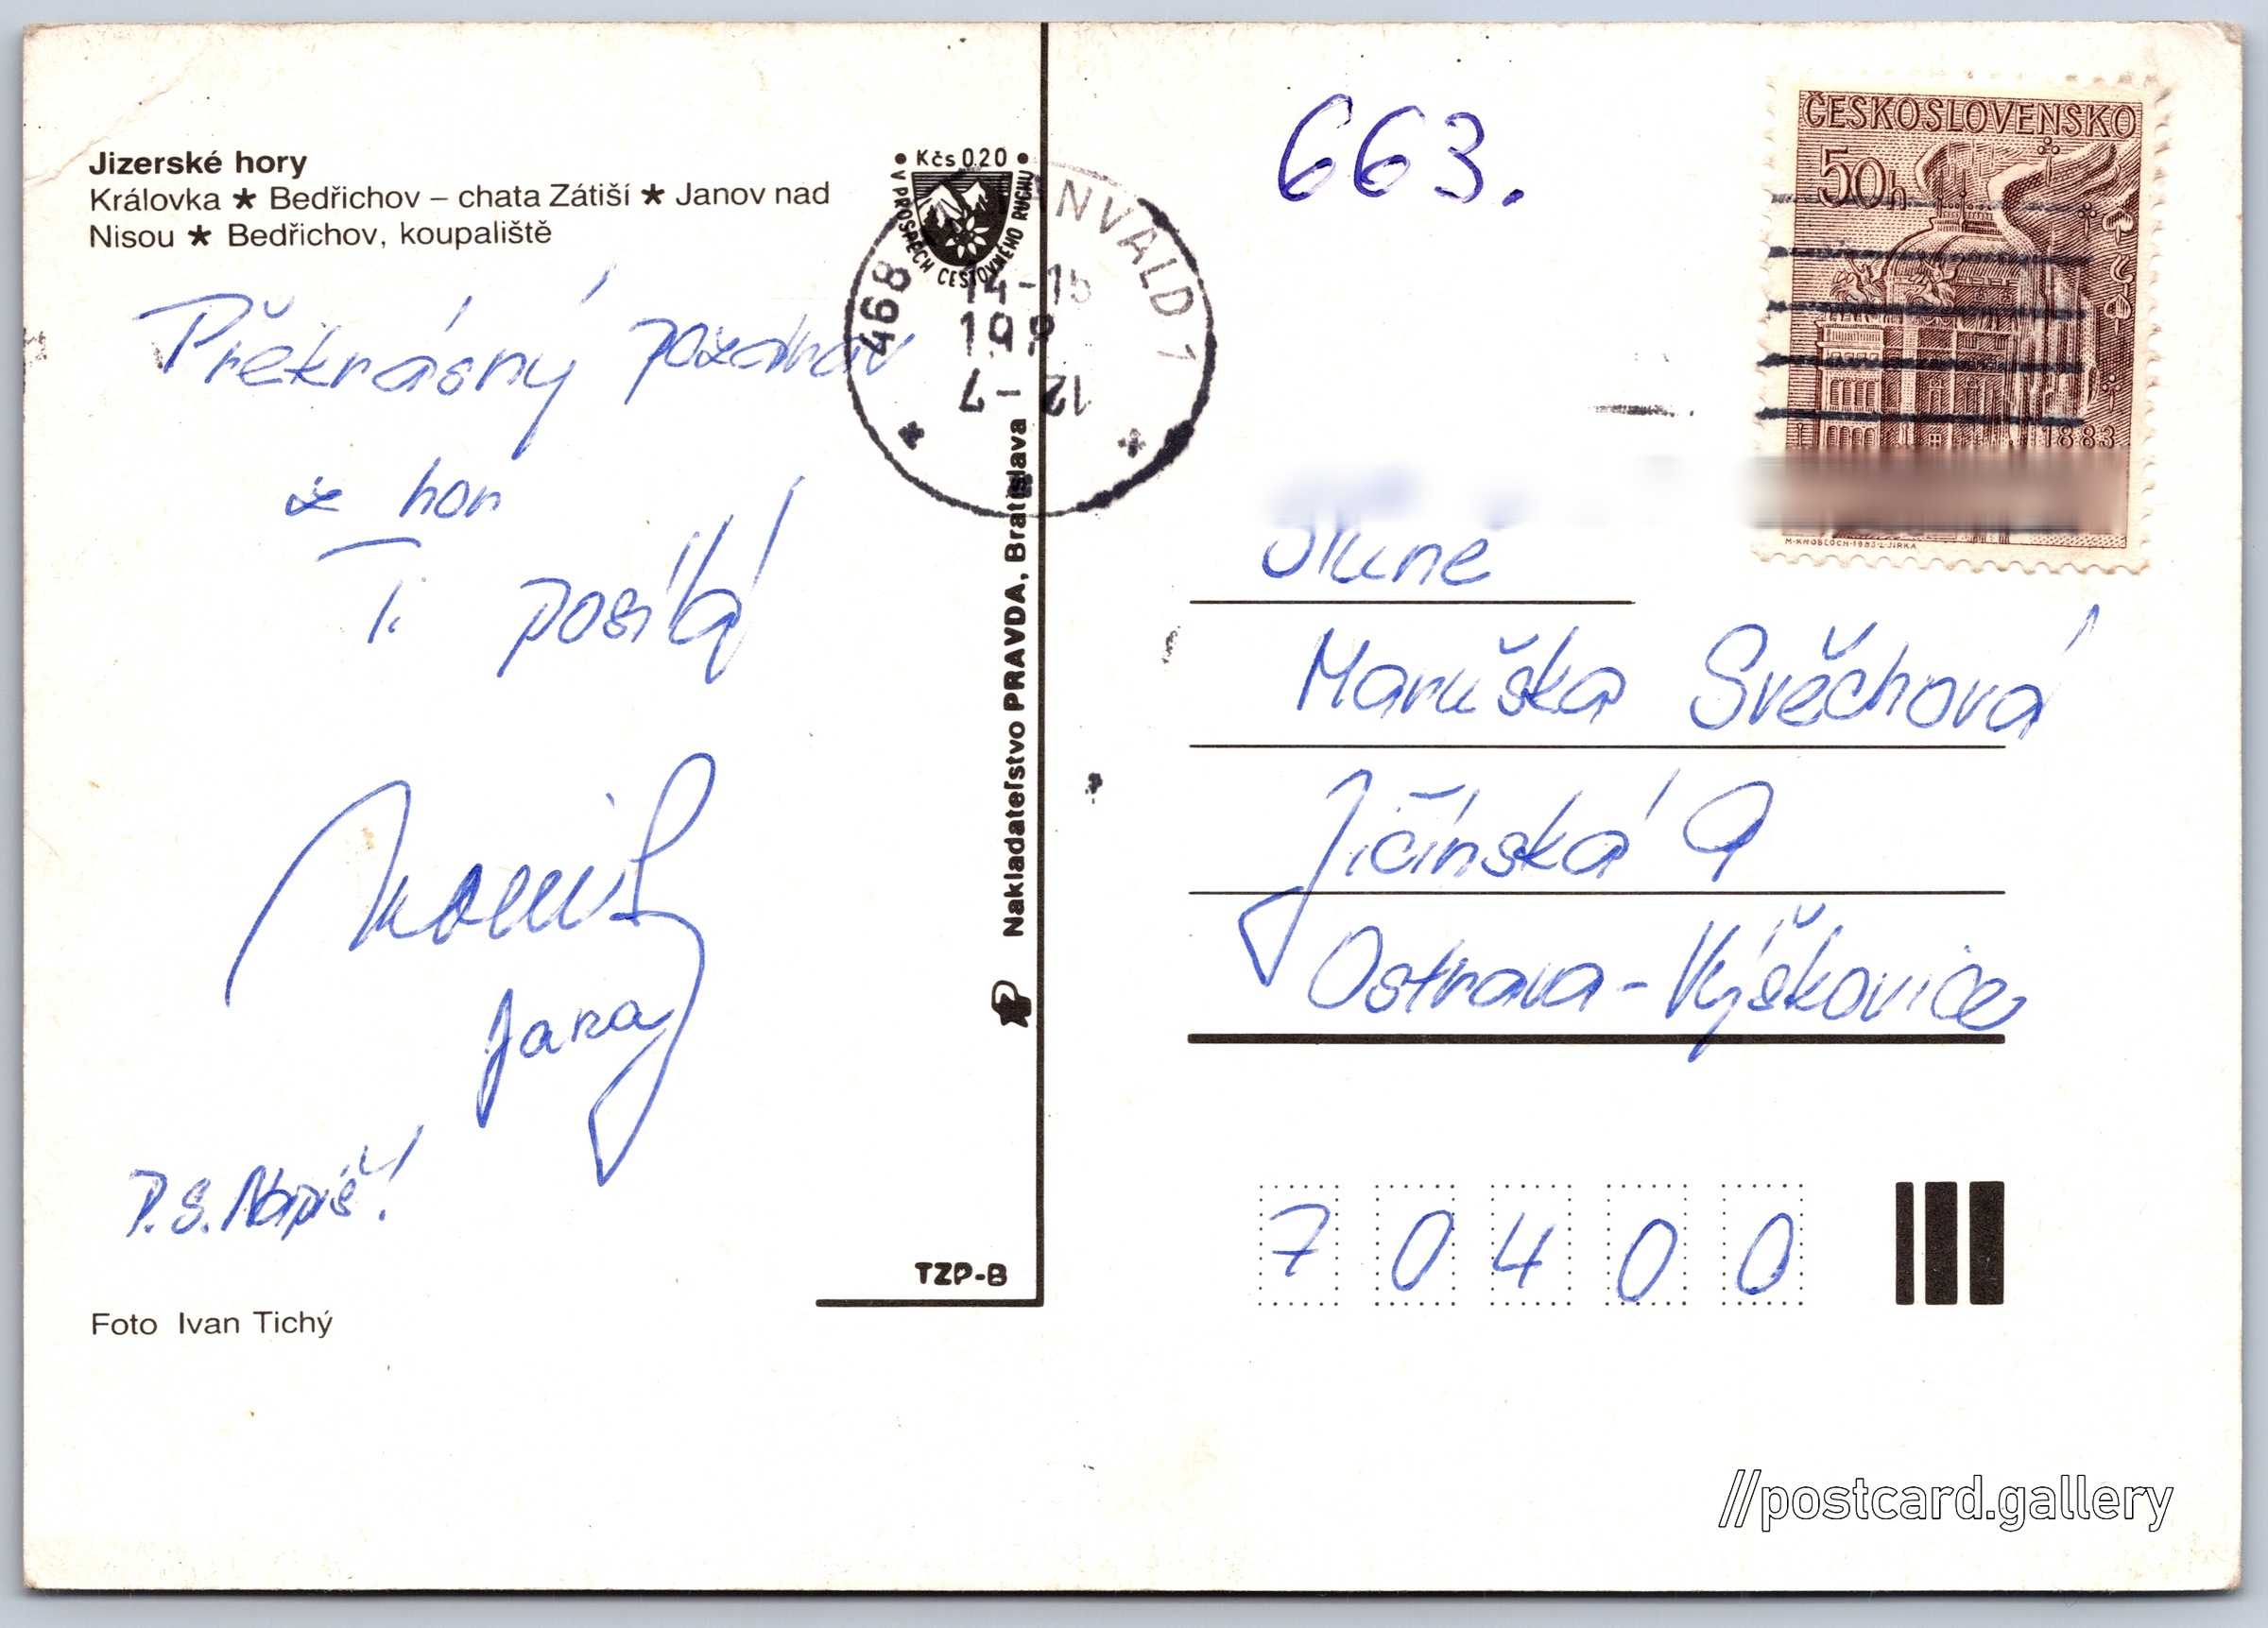 Jizerské hory
Královka ★ Bedřichov – chata Zátiší ★ Janov nad
Nisou ★ Bedřichov, koupaliště
Překrásný pozdrav
z hor
Ti posílá
Jana
P.S. Napiš!
Foto Ivan Tichý
• Kčs 0,20 •
V PROSPĚCH CESTOVNÉHO RUCHU
468
NVALD 1
14-15
Nakladateľstvo PRAVDA, Bratislava
TZP-B
663.
ČESKOSLOVENSKO
50h
1883
M·KNOBLOCH·1983·L·JIRKA
Maruška Svěchová
Jičínská 9
Ostrava-Výškovice
7 0 4 0 0
//postcard.gallery